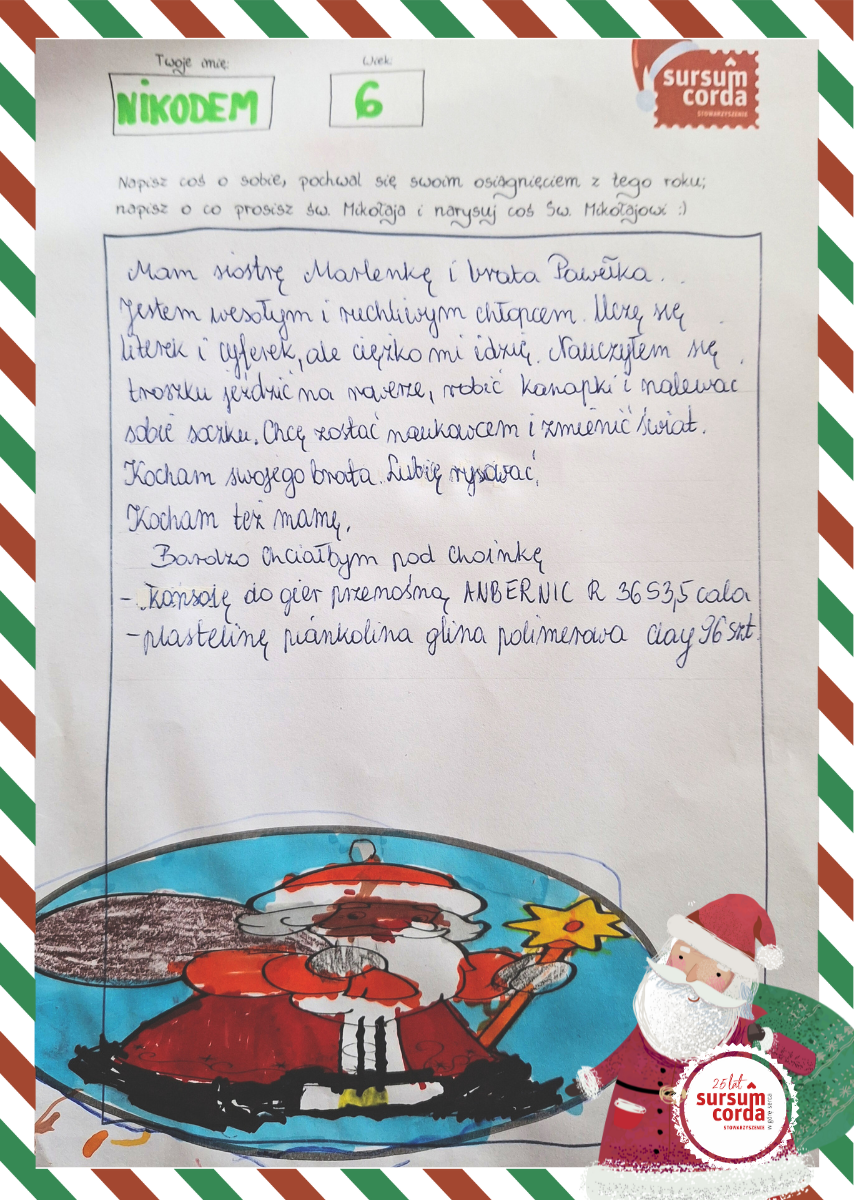 Twoje imię:
Wiek:
NIKODEM
6
sursum
corda
STOWARZYSZENIE
Napisz coś o sobie, pochwal się swoim osiągnięciem z tego roku;
napisz o co prosisz św. Mikołaja i narysuj coś Św. Mikołajowi :)
Mam siostrę Marlenkę i brata Pawełka.
Jestem wesołym i ruchliwym chłopcem. Uczę się
literek i cyferek, ale ciężko mi idzię. Nauczyłem się
troszku jeździć na rowerze, robić kanapki i nalewac
sobie soczku. Chcę zostać naukowcem i zmienić świat.
Kocham swojego brata. Lubię rysować.
Kocham też mamę.
Bardzo chciałbym pod choinkę
- konsolę do gier przenośną ANBERNIC R 36 S 3,5 cala
- plastelinę piankolina glina polimerowa clay 96 szt.
25 lat
sursum
corda
STOWARZYSZENIE
w górę serca